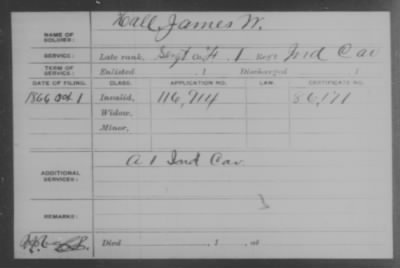 NAME OF SOLDIER: Hall James W.
SERVICE: Late rank, Sergt Co. H. 1 Reg't Ind Cav
TERM OF SERVICE: Enlisted , 1 Discharged , 1
DATE OF FILING. CLASS. APPLICATION NO. LAW. CERTIFICATE NO.
1866 Oct 1 Invalid, 116,714 86,171
Widow,
Minor,
ADDITIONAL SERVICES: A 1 Ind Cav.
REMARKS:
Died , 1 , at